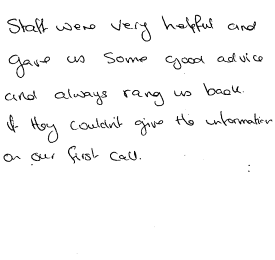 Staff were very helpful and
gave us some good advice
and always rang us back.
if they couldn't give the information
on our first call.